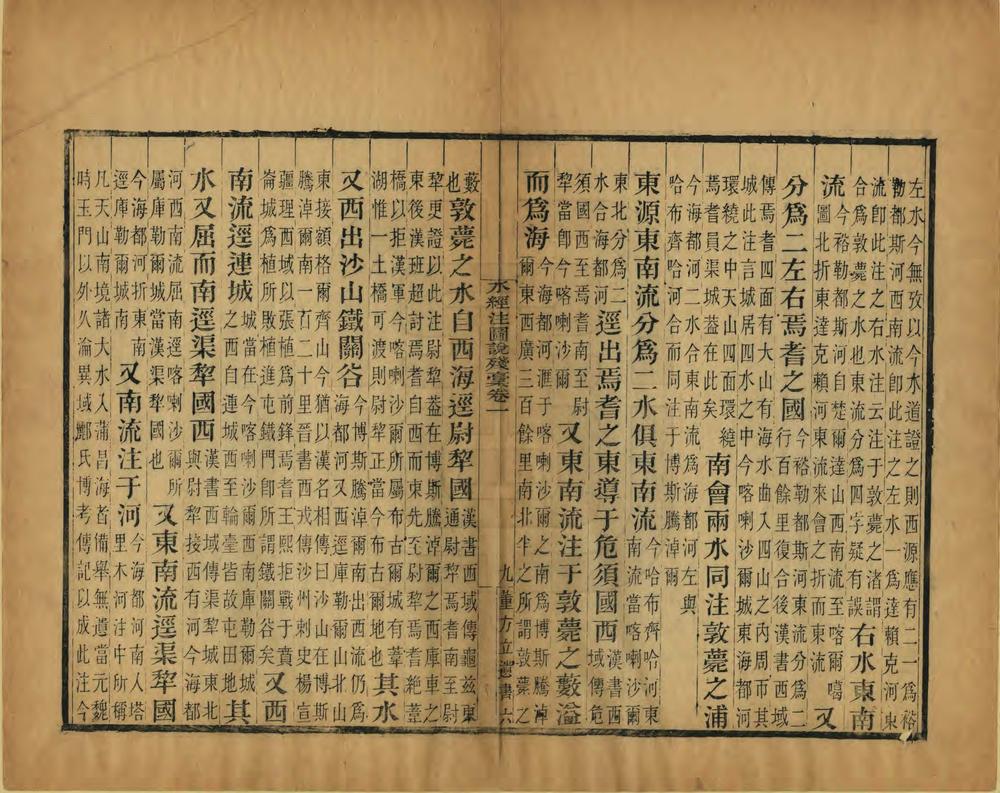 左水今無攷以今水道證之則西源應有二一為裕
勒都斯河西南流卽此注之左水一為達賴克河東
流卽此注之右水注云注于敦薨之渚謂
合為敦薨之水也東流分為四字疑有誤右水東南
流今裕勒都斯河自楚爾達山西南流至喀噶
圖北折東達克賴河東流來會之折而東流又
分為二左右焉耆之國今裕勒都斯河東流分為二
行百餘里復合後漢書西域
傳焉耆四面有大山有海水曲入四山之内周帀其
城此注言城居四水之中今喀喇沙爾城東海都河
環繞之中天山四面環繞
焉耆員渠城蓋在此矣南會兩水同注敦薨之浦
今海都河二水合東南流為海都河左與
哈布齊哈河合而同注于博斯騰淖爾
東源東南流分為二水俱東南流今哈布齊哈河東
南流當喀喇沙爾
東北分為二
水合海都河逕出焉耆之東導于危須國西漢書西
域傳危
須國西至焉耆南至尉
犂當卽今喀喇沙爾又東南流注于敦薨之藪溢
而為海今海都河滙于喀喇沙爾之南為博斯騰淖
爾東西廣三百餘里南北半之所謂敦薨之
水經注圖說殘稾卷一
九
董方立遺書六
藪
也敦薨之水自西海逕尉犂國漢書西域傳龜兹東
通尉犂焉耆南至尉
犂更證以此注尉犂蓋在博斯騰淖爾之西庫車之
東後漢班超討焉耆自西而東先至尉犂焉耆絕葦
橋以拒漢軍今喀喇沙爾所屬布古爾城有葦
湖惟一土橋可渡則尉犂正當今布古爾地也其水
又西出沙山鐵關谷今博斯騰淖爾山北流仍為
海都河又西逕庫勒爾山北山
東接額格爾齊山今猶以漢名相傳曰沙山在博斯
騰淖爾南一百二十里晉書西戎傳沙州刺史楊宣
疆理西域以張植為前鋒焉耆王熙拒戰于賁
崙城為植所敗植進屯鐵門卽所謂鐵關谷矣又西
南流逕連城當在今喀喇沙爾西南庫勒爾城
之西自連城西至輪臺皆故屯田地其
水又屈而南逕渠犂國西漢書西域傳渠犂城東北
與尉犂接西有河今海都
河西南流屈南逕喀喇沙爾所
屬庫勒爾城當漢渠犂國也又東南流逕渠犂國
今海都河折東南
逕庫勒爾城南又南流注于河今海都河南入塔
里木河注中所稱
凡天山南境諸大水入蒲昌海者備舉無遺當元魏
時玉門以外久淪異域酈氏博考傳記以成此注今